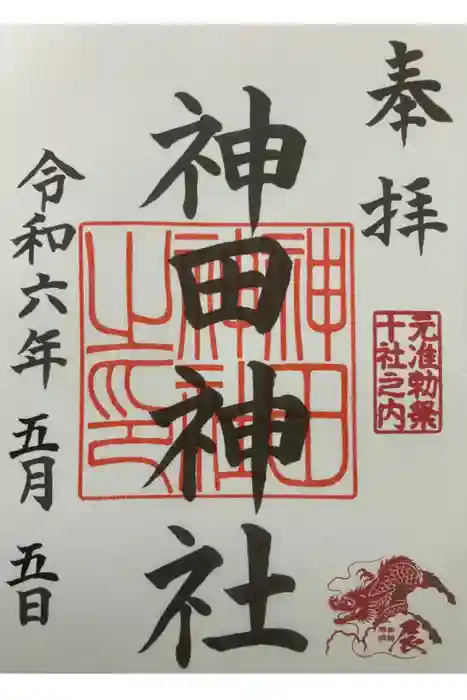 奉拝
元准勅祭
十社之内
神田神社
神田
神社
之印
令和六年五月五日
辰